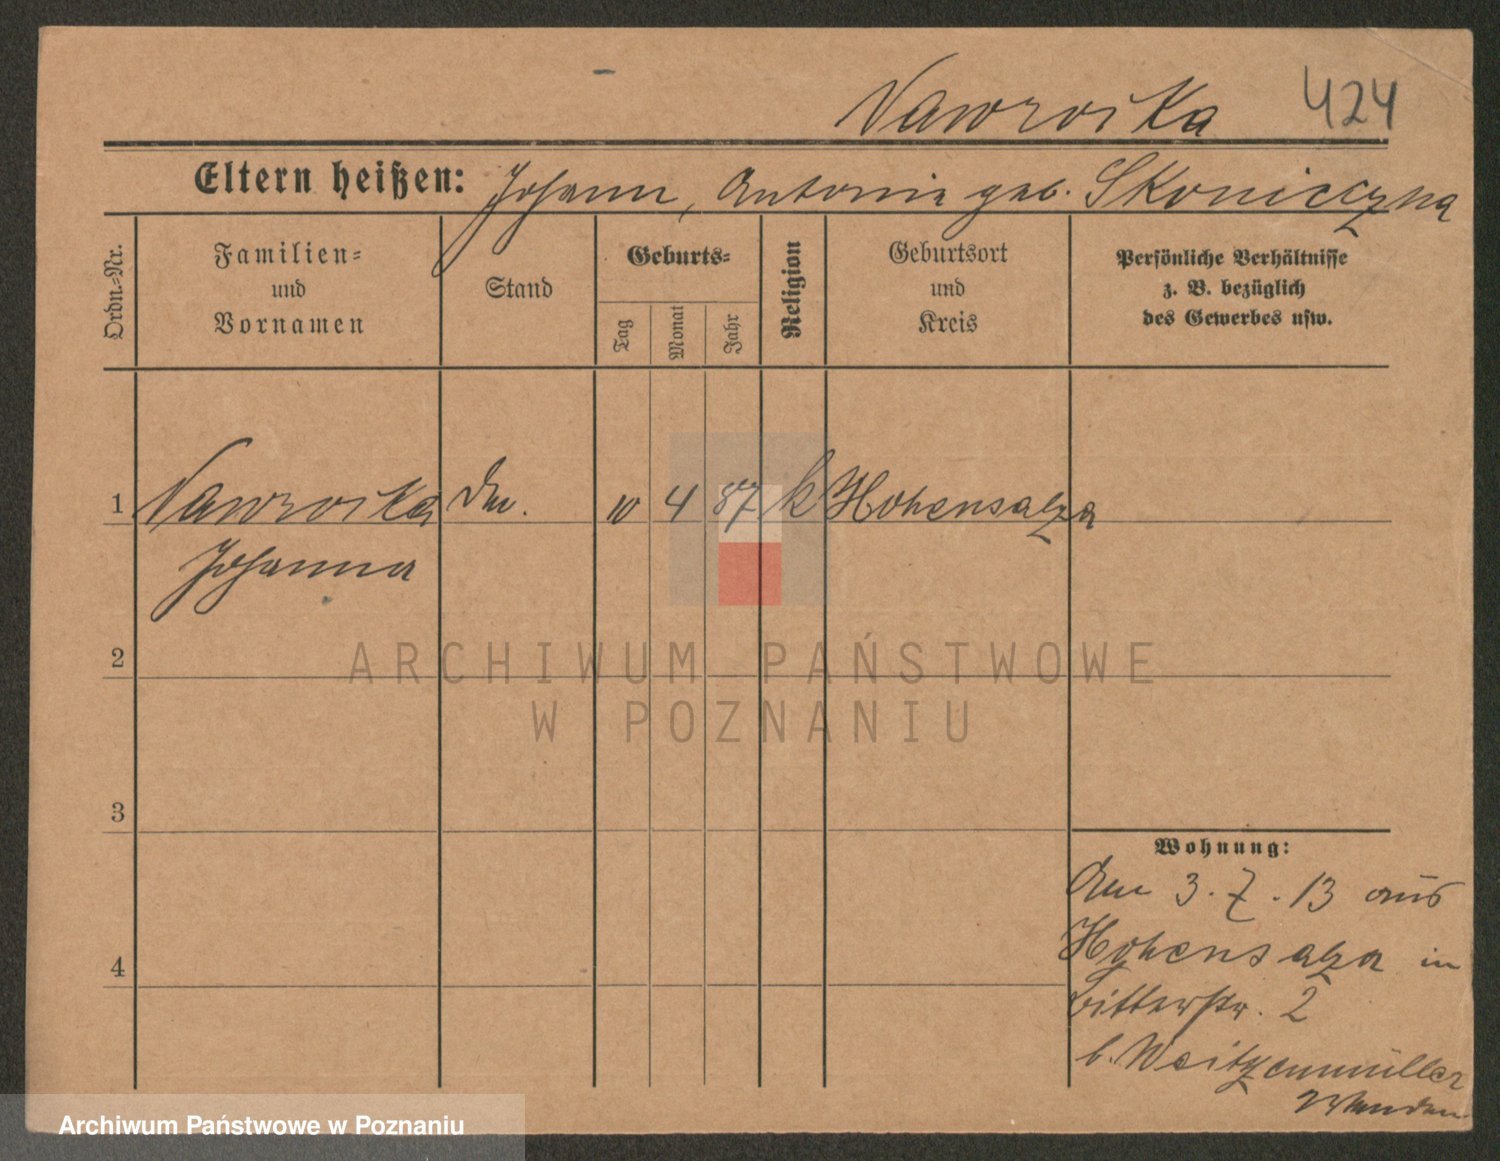 Nawrocka 424
Eltern heißen: Johann, Antonie geb. Skonieczna
Ordn.-Nr.
Familien-
und
Vornamen
Stand
Geburts-
Tag
Monat
Jahr
Religion
Geburtsort
und
Kreis
Persönliche Verhältnisse
z. B. bezüglich
des Gewerbes usw.
1 Nawrocka 10 4 87 k Hohensalza
Johanna
2
ARCHIWUM PAŃSTWOWE
W POZNANIU
3
Wohnung:
Am 3.7.13 aus
4
Hohensalza in
Ritterstr. 2
b. Weitzenmüller
Archiwum Państwowe w Poznaniu